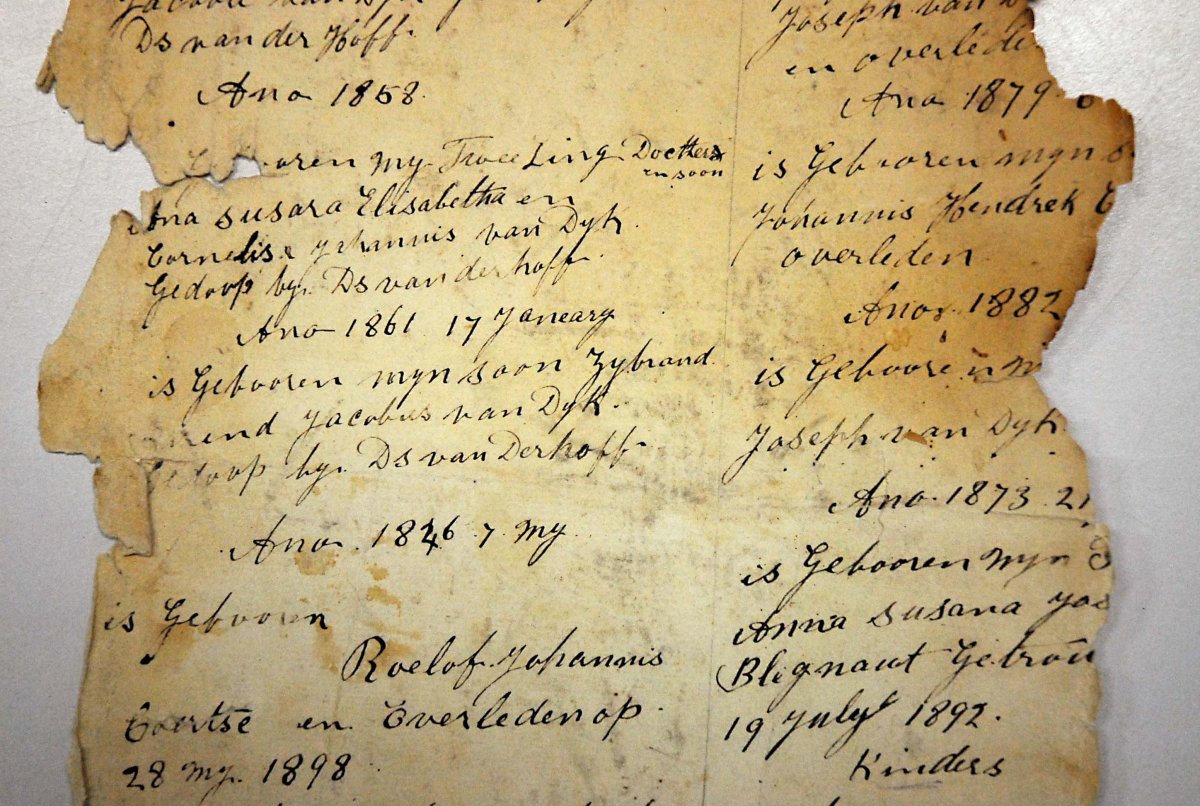 Ds van der Hoff
Ano 1858
oren my Twee Ling Doetters
en soon
Ana susara Elisabetha en
Cornelis Johannis van Dyk
Gedoop by Ds van der hoff
Ano 1861 17 Janeary
is Gebooren myn soon Zybrand
end Jacobus van Dyk.
Gedoop by. Ds van Derhoff
Ano 1846 7 my
is Gebooren
Roelof Johannis
Coertse en Overleden op
28 my. 1898
Joseph van
en overlede
Ano 1879
is Gebooren myn
Johannis Hendrek
overleden
Ano. 1882
is Geboore
Joseph van Dyk
Ano 1873 21
is Gebooren myn
Anna susana
Blegnaut Getrou
19 July 1892.
Kinders